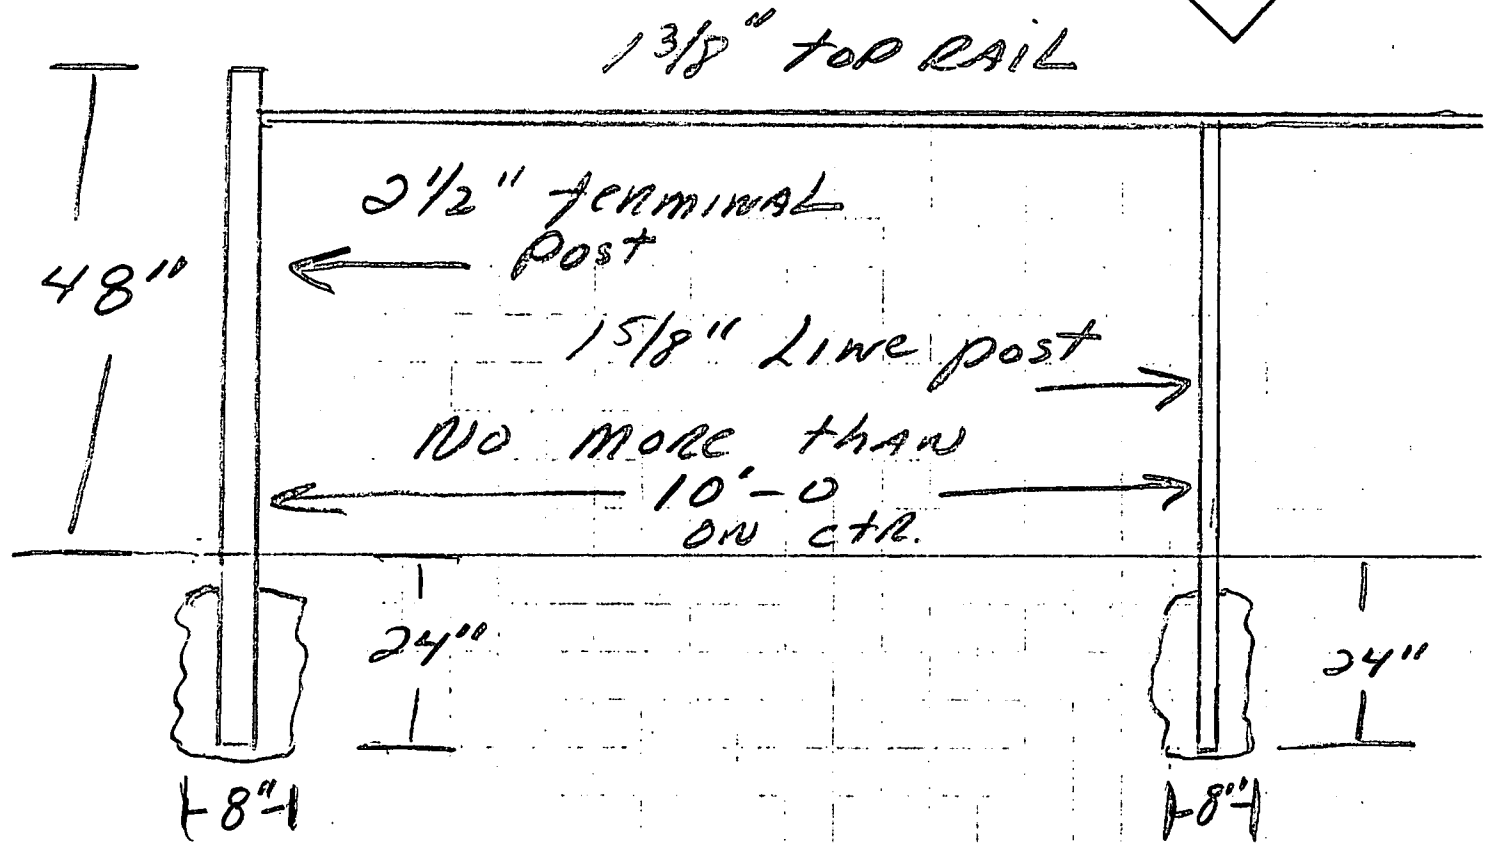 1 3/8" TOP RAIL
2 1/2" TERMINAL
POST
48"
1 5/8" LINE POST
NO MORE THAN
10'-0
ON CTR.
24"
24"
8"
8"